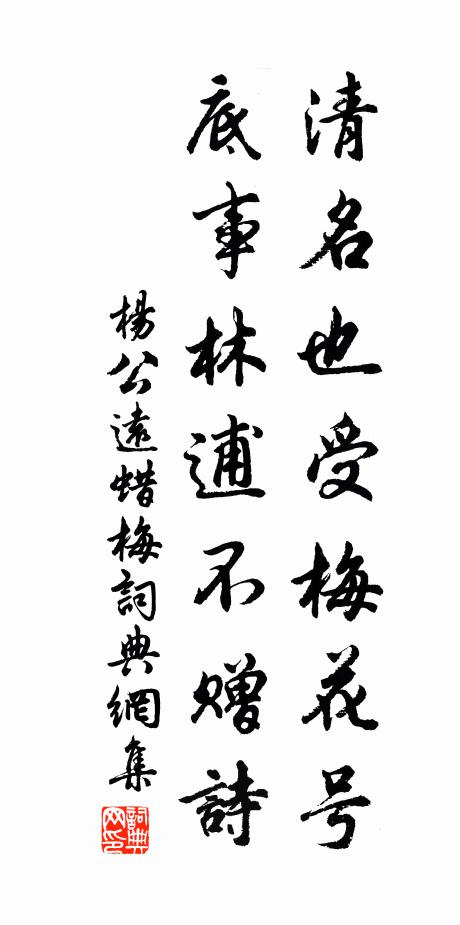 清名也受梅花号
底事林逋不赠詩
楊公遠蜡梅詞典網集
詞典网印